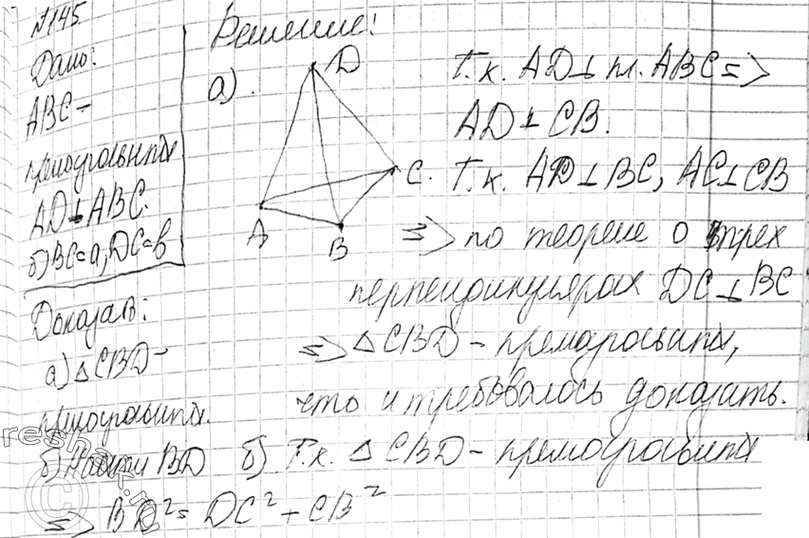 №145
Дано:
ABC –
прямоугольный
AD⊥ABC.
б) BC=a, DC=b
Доказать:
а) △CBD –
прямоугольн.
б) Найти BD
Решение:
а).
D
A
B
C.
Т.к. AD⊥пл. ABC =>
AD⊥CB.
Т.к. AD⊥BC, AC⊥CB
=> по теореме о трех
перпендикулярах DC⊥BC
=> △CBD – прямоугольный,
что и требовалось доказать.
б) Т.к. △CBD – прямоугольный
=> BD²= DC²+CB²